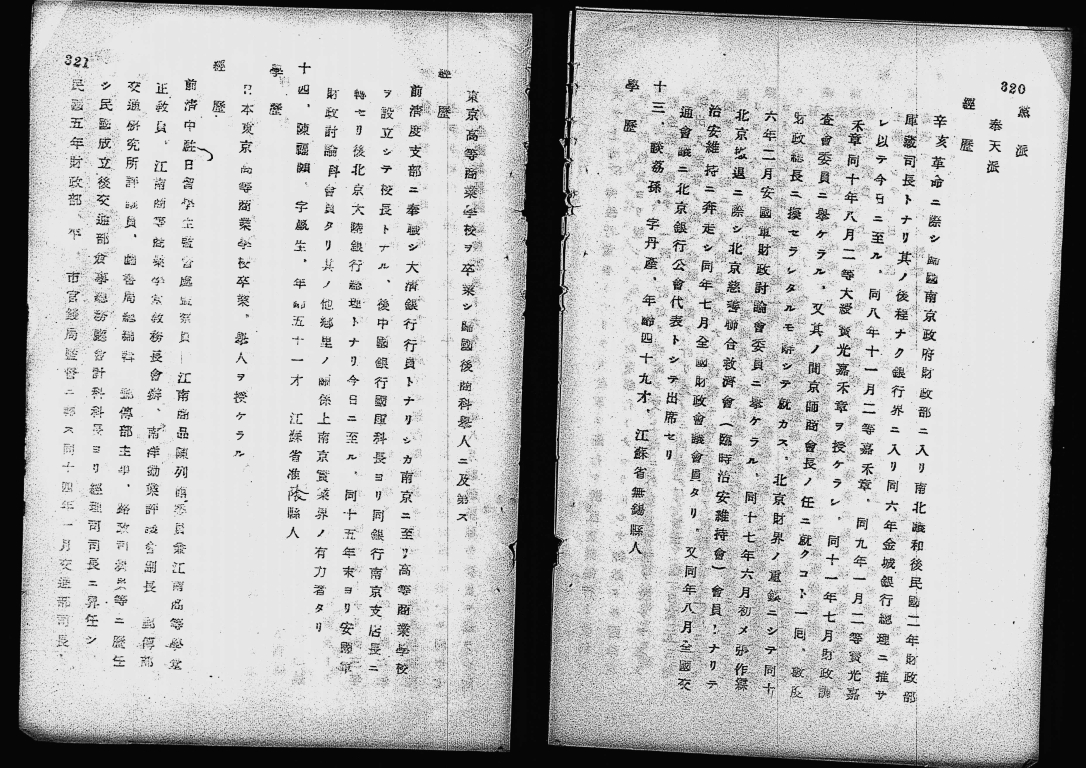 320
黨派
奉天派
經歷
辛亥革命ニ際シ歸國南京政府財政部ニ入リ南北議和後民國二年財政部
庫藏司長トナリ其ノ後程ナク銀行界ニ入リ同六年金城銀行總理ニ推サ
レ以テ今日ニ至ル、同八年十一月二等嘉禾章、同九年一月二等寶光嘉
禾章同十年八月二等大綬寶光嘉禾章ヲ授ケラレ、同十一年七月財政調
査會委員ニ擧ケラル、又其ノ間京師商會長ノ任ニ就クコト一回、數度
財政總長ニ擬セラレタルモ辭シテ就カス、北京財界ノ重鎭ニシテ同十
六年二月安國軍財政討論會委員ニ擧ケラル、同十七年六月初メ張作霖
北京撤退ニ際シ北京慈善聯合救濟會(臨時治安維持會)會員トナリテ
治安維持ニ奔走シ同年七月全國財政會議會員タリ、又同年八月全國交
通會議ニ北京銀行公會代表トシテ出席セリ
十三、談荔孫、字丹崖、年齡四十九才、江蘇省無錫縣人
學歷
東京高等商業學校ヲ卒業シ歸國後商科擧人ニ及第ス
經歷
前淸度支部ニ奉職シ大淸銀行行員トナリシカ南京ニ至リ高等商業學校
ヲ設立シテ校長トナル、後中國銀行國庫科長ヨリ同銀行南京支店長ニ
轉セリ後北京大陸銀行總理トナリ今日ニ至ル、同十五年末ヨリ安國軍
財政討論會員タリ其ノ他鄕里ノ關係上南京實業界ノ有力者タリ
十四、陳福頤、字嚴生、年齡五十一才、江蘇省淮陰縣人
學歷
日本東京高等商業學校卒業、擧人ヲ授ケラル
經歷
前淸中駐日留學生監督處 員 江南商品陳列 委員兼江南高等學堂
正敎員、江南商等商業學堂敎務長會辦、南洋勸業評議會副長 郵傳部
交通硏究所評議員、圖書局總編輯 郵傳部主事、路政司 等ニ歷任
シ民國成立後交通部僉事總務廳會計科科長ヨリ經理司司長ニ昇任シ
民國五年財政部 市官錢局監督ニ轉ス同十四年一月交通部司長、
321